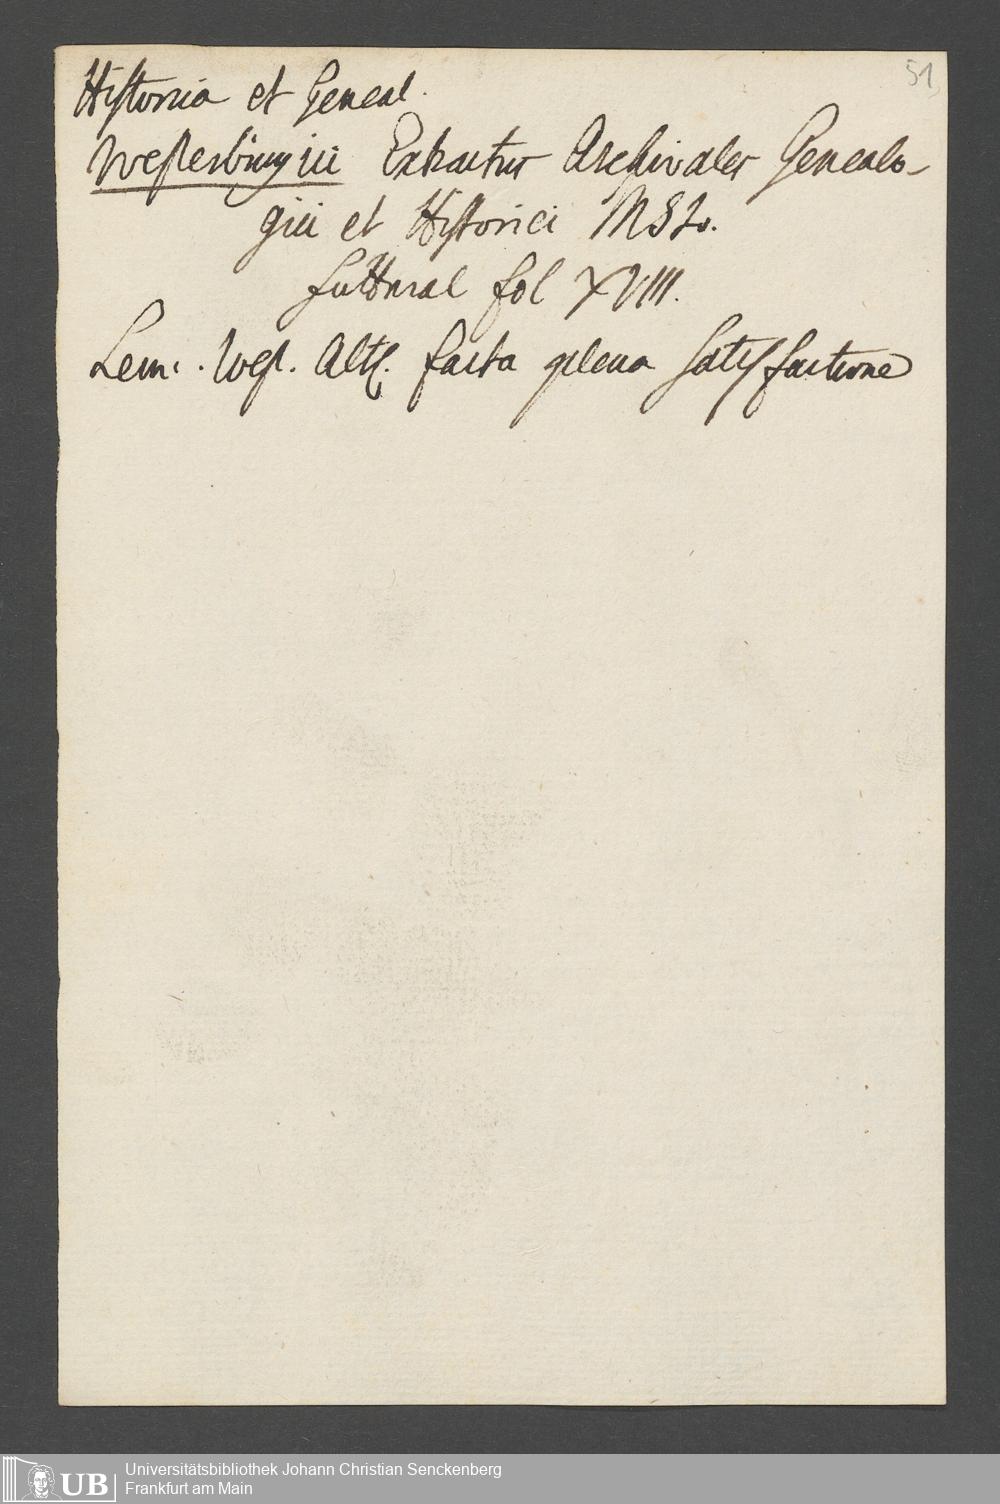 51,
Historia et Geneal.
Westerburgici Extractus Archivales Genealo-
gici et Historici MSti.
futteral fol XVIII.
Lein. West. Alth. facta plena satisfactione
UB Universitätsbibliothek Johann Christian Senckenberg
Frankfurt am Main